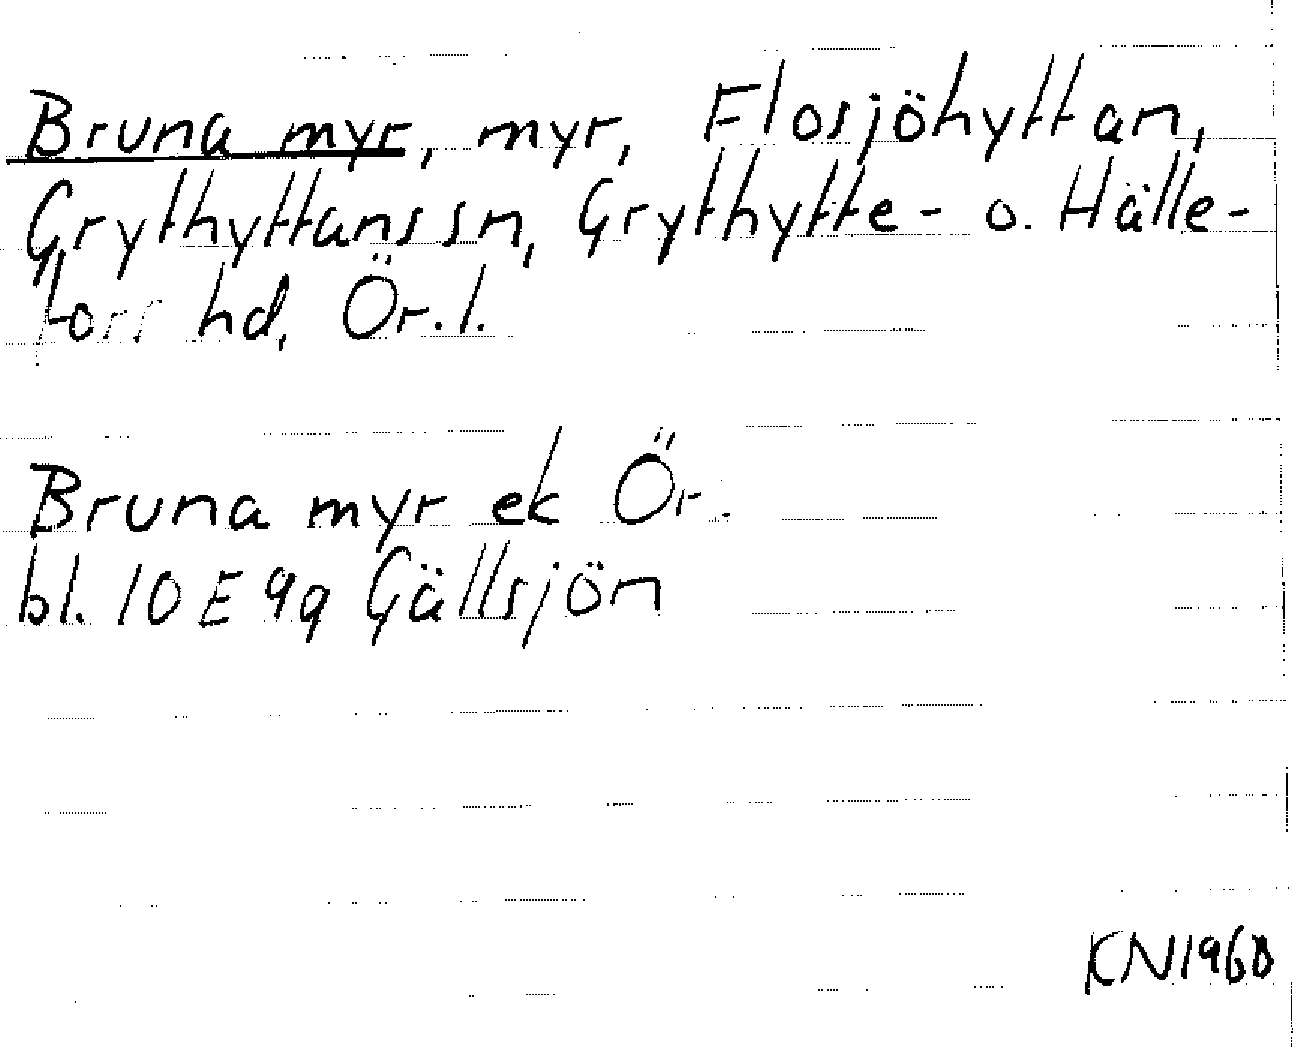 Bruna myr, myr, Flosjöhyttan,
Grythyttans sn, Grythytte- o. Hälle-
fors hd, Ör. l.
Bruna myr ek Ör.
bl. 10 E 9g Gällsjön
KN 1968